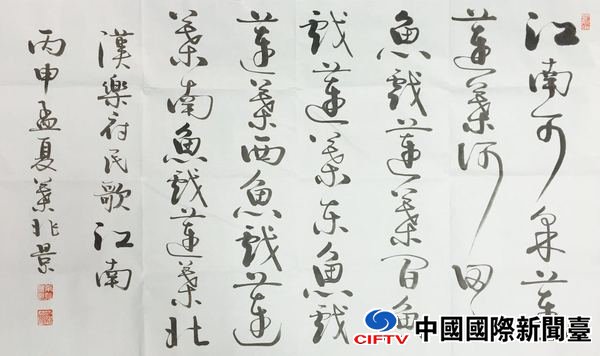 江南可采蓮
蓮葉何田〻
魚戲蓮葉間魚
戲蓮葉东魚戲
蓮葉西魚戲蓮
葉南魚戲蓮葉北
漢樂府民歌江南
丙申孟夏
CIFTV 中國國際新聞臺